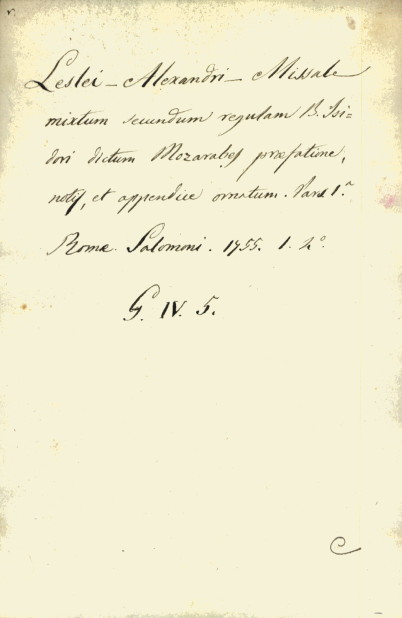 Leslei - Alexandri - Missale
mixtum secundum regulam B. Isi=
dori dictum Mozarabes præfatione,
notis, et appendice ornatum. Pars 1.a
Romæ. Salomoni. 1755. 1. 2.o
G. IV. 5.
C